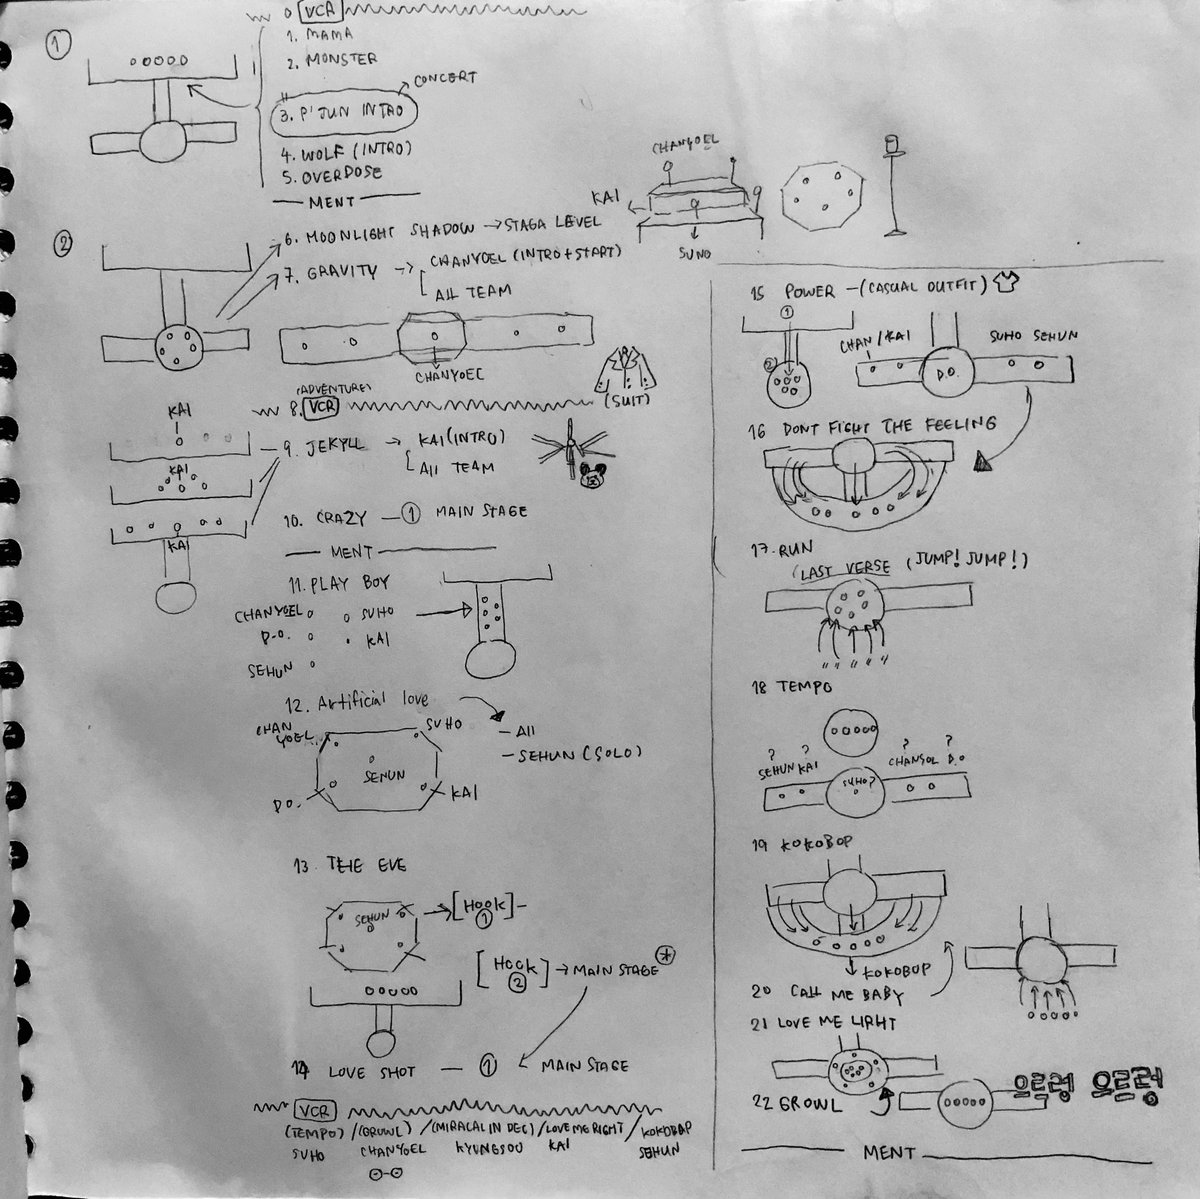 ①
0 VCR
1. MAMA
2. MONSTER
3. P'JUN INTRO
CONCERT
4. WOLF (INTRO)
5. OVERDOSE
MENT
CHANYOEL
KAI
SUHO
②
6. MOONLIGHT SHADOW → STAGA LEVEL
7. GRAVITY → CHANYOEL (INTRO+START)
All TEAM
CHANYOEL
(SUIT)
(ADVENTURE)
8. VCR
KAI
9. JEKYLL → KAI (INTRO)
All TEAM
KAI
KAI
10. CRAZY — ① MAIN STAGE
MENT
11. PLAY BOY
CHANYOEL SUHO
D.O. KAI
SEHUN
12. Artificial love
All
SEHUN (SOLO)
CHAN
YOEL
SUHO
SEHUN
D.O. KAI
13. THE EVE
SEHUN
[Hook] -
①
[Hook] → MAIN STAGE *
②
14 LOVE SHOT — ① MAIN STAGE
VCR
(TEMPO) / (GROWL) / (MIRACAL IN DEC) / LOVE ME RIGHT / KOKOBAP
SUHO CHANYOEL KYUNGSOO KAI SEHUN
15 POWER — (CASUAL OUTFIT)
①
②
CHAN / KAI SUHO SEHUN
D.O.
16 DONT FIGHT THE FEELING
17. RUN
(LAST VERSE (JUMP! JUMP!)
18 TEMPO
? ? ? ?
SEHUN KAI CHANSOL D.O
SUHO?
19 KOKOBOP
KOKOBOP
20 CALL ME BABY
21 LOVE ME LIRHT
22 GROWL
으르렁 으르렁
MENT